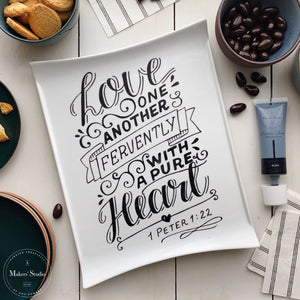 Love
ONE
ANOTHER
FERVENTLY
WITH
A PURE
Heart
1 PETER 1:22
Makers' Studio